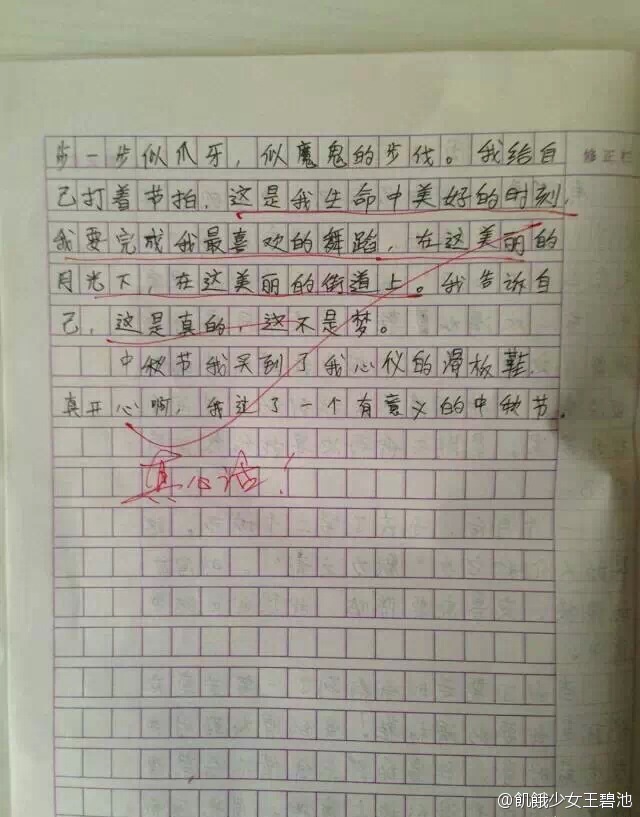 步一步似爪牙，似魔鬼的步伐。我给自
修正栏
己打着节拍，这是我生命中美好的时刻，
我要完成我最喜欢的舞蹈，在这美丽的
月光下，在这美丽的街道上。我告诉自
己，这是真的，这不是梦。
中秋节我买到了我心仪的滑板鞋，
真开心啊，我过了一个有意义的中秋节。
真心话！
@飢餓少女王碧池